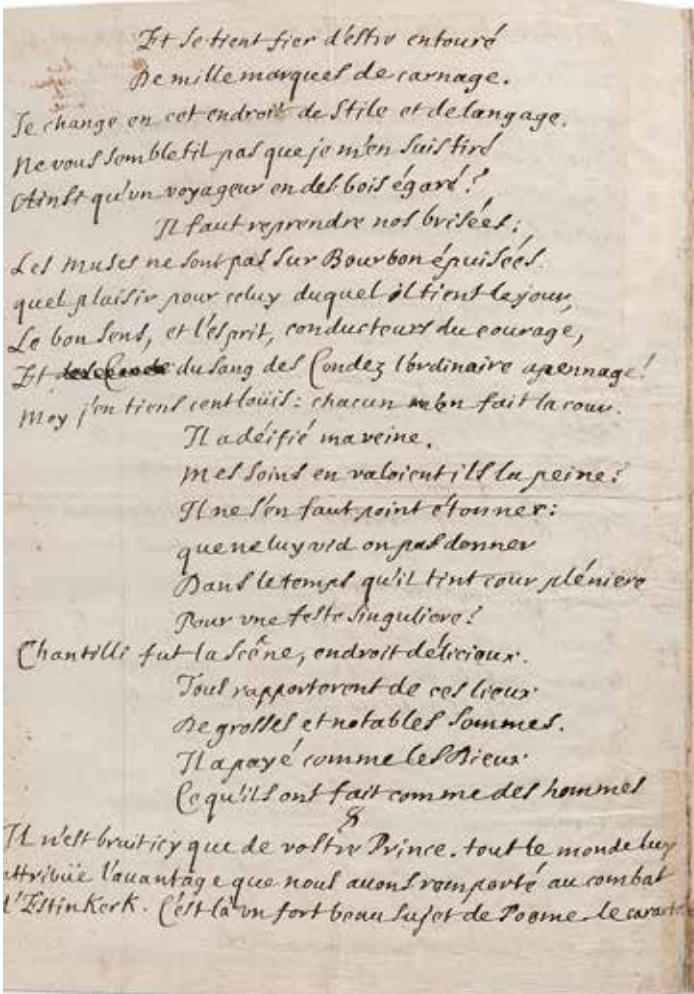 Et se tient fier d'estre entouré
De mille marques de carnage.
Je change en cet endroit de stile et de langage.
Ne vous semble til pas que je m'en suis tiré
Ainsi qu'un voyageur en des bois égaré?
Il faut reprendre nos brisées:
Les Muses ne sont pas sur Bourbon épuisées.
quel plaisir pour celuy duquel il tient le jour,
Le bon sens, et l'esprit, conducteurs du courage,
Et du sang des Condez l'ordinaire apennage!
Moy j'en tiens cent loüis: chacun m'en fait la cour.
Il a déifié ma veine.
Mes soins en valoient ils la peine?
Il ne s'en faut point étonner:
que ne luy vid on pas donner
Dans le temps qu'il tint cour pléniere
Pour vne feste singuliere?
Chantilli fut la scêne, endroit délicieux.
Tous rapporterent de ces lieux
De grosses et notables sommes.
Il a payé comme les Dieux
Ce qu'ils ont fait comme des hommes
Il n'est bruit icy que de vostre Prince. tout le monde luy
attribüe l'auantage que nous auons remporté au combat
d'Estinkerk. C'est là vn fort beau sujet de Poeme. le caract